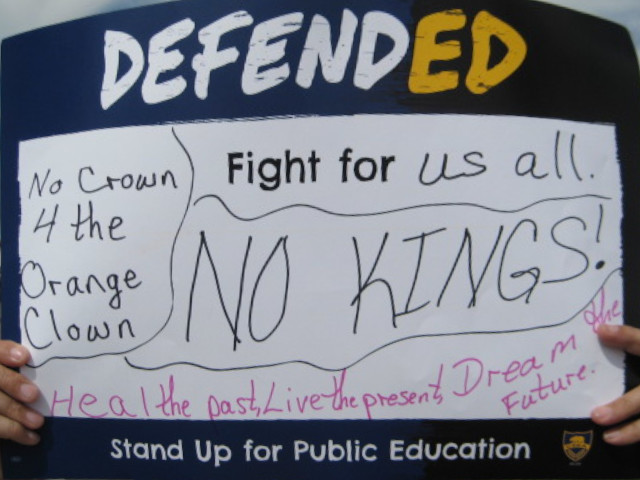 DEFENDED
Fight for us all.
No Crown
4 the
Orange
Clown
NO KINGS!
Heal the past, Live the present, Dream the
Future.
Stand Up for Public Education